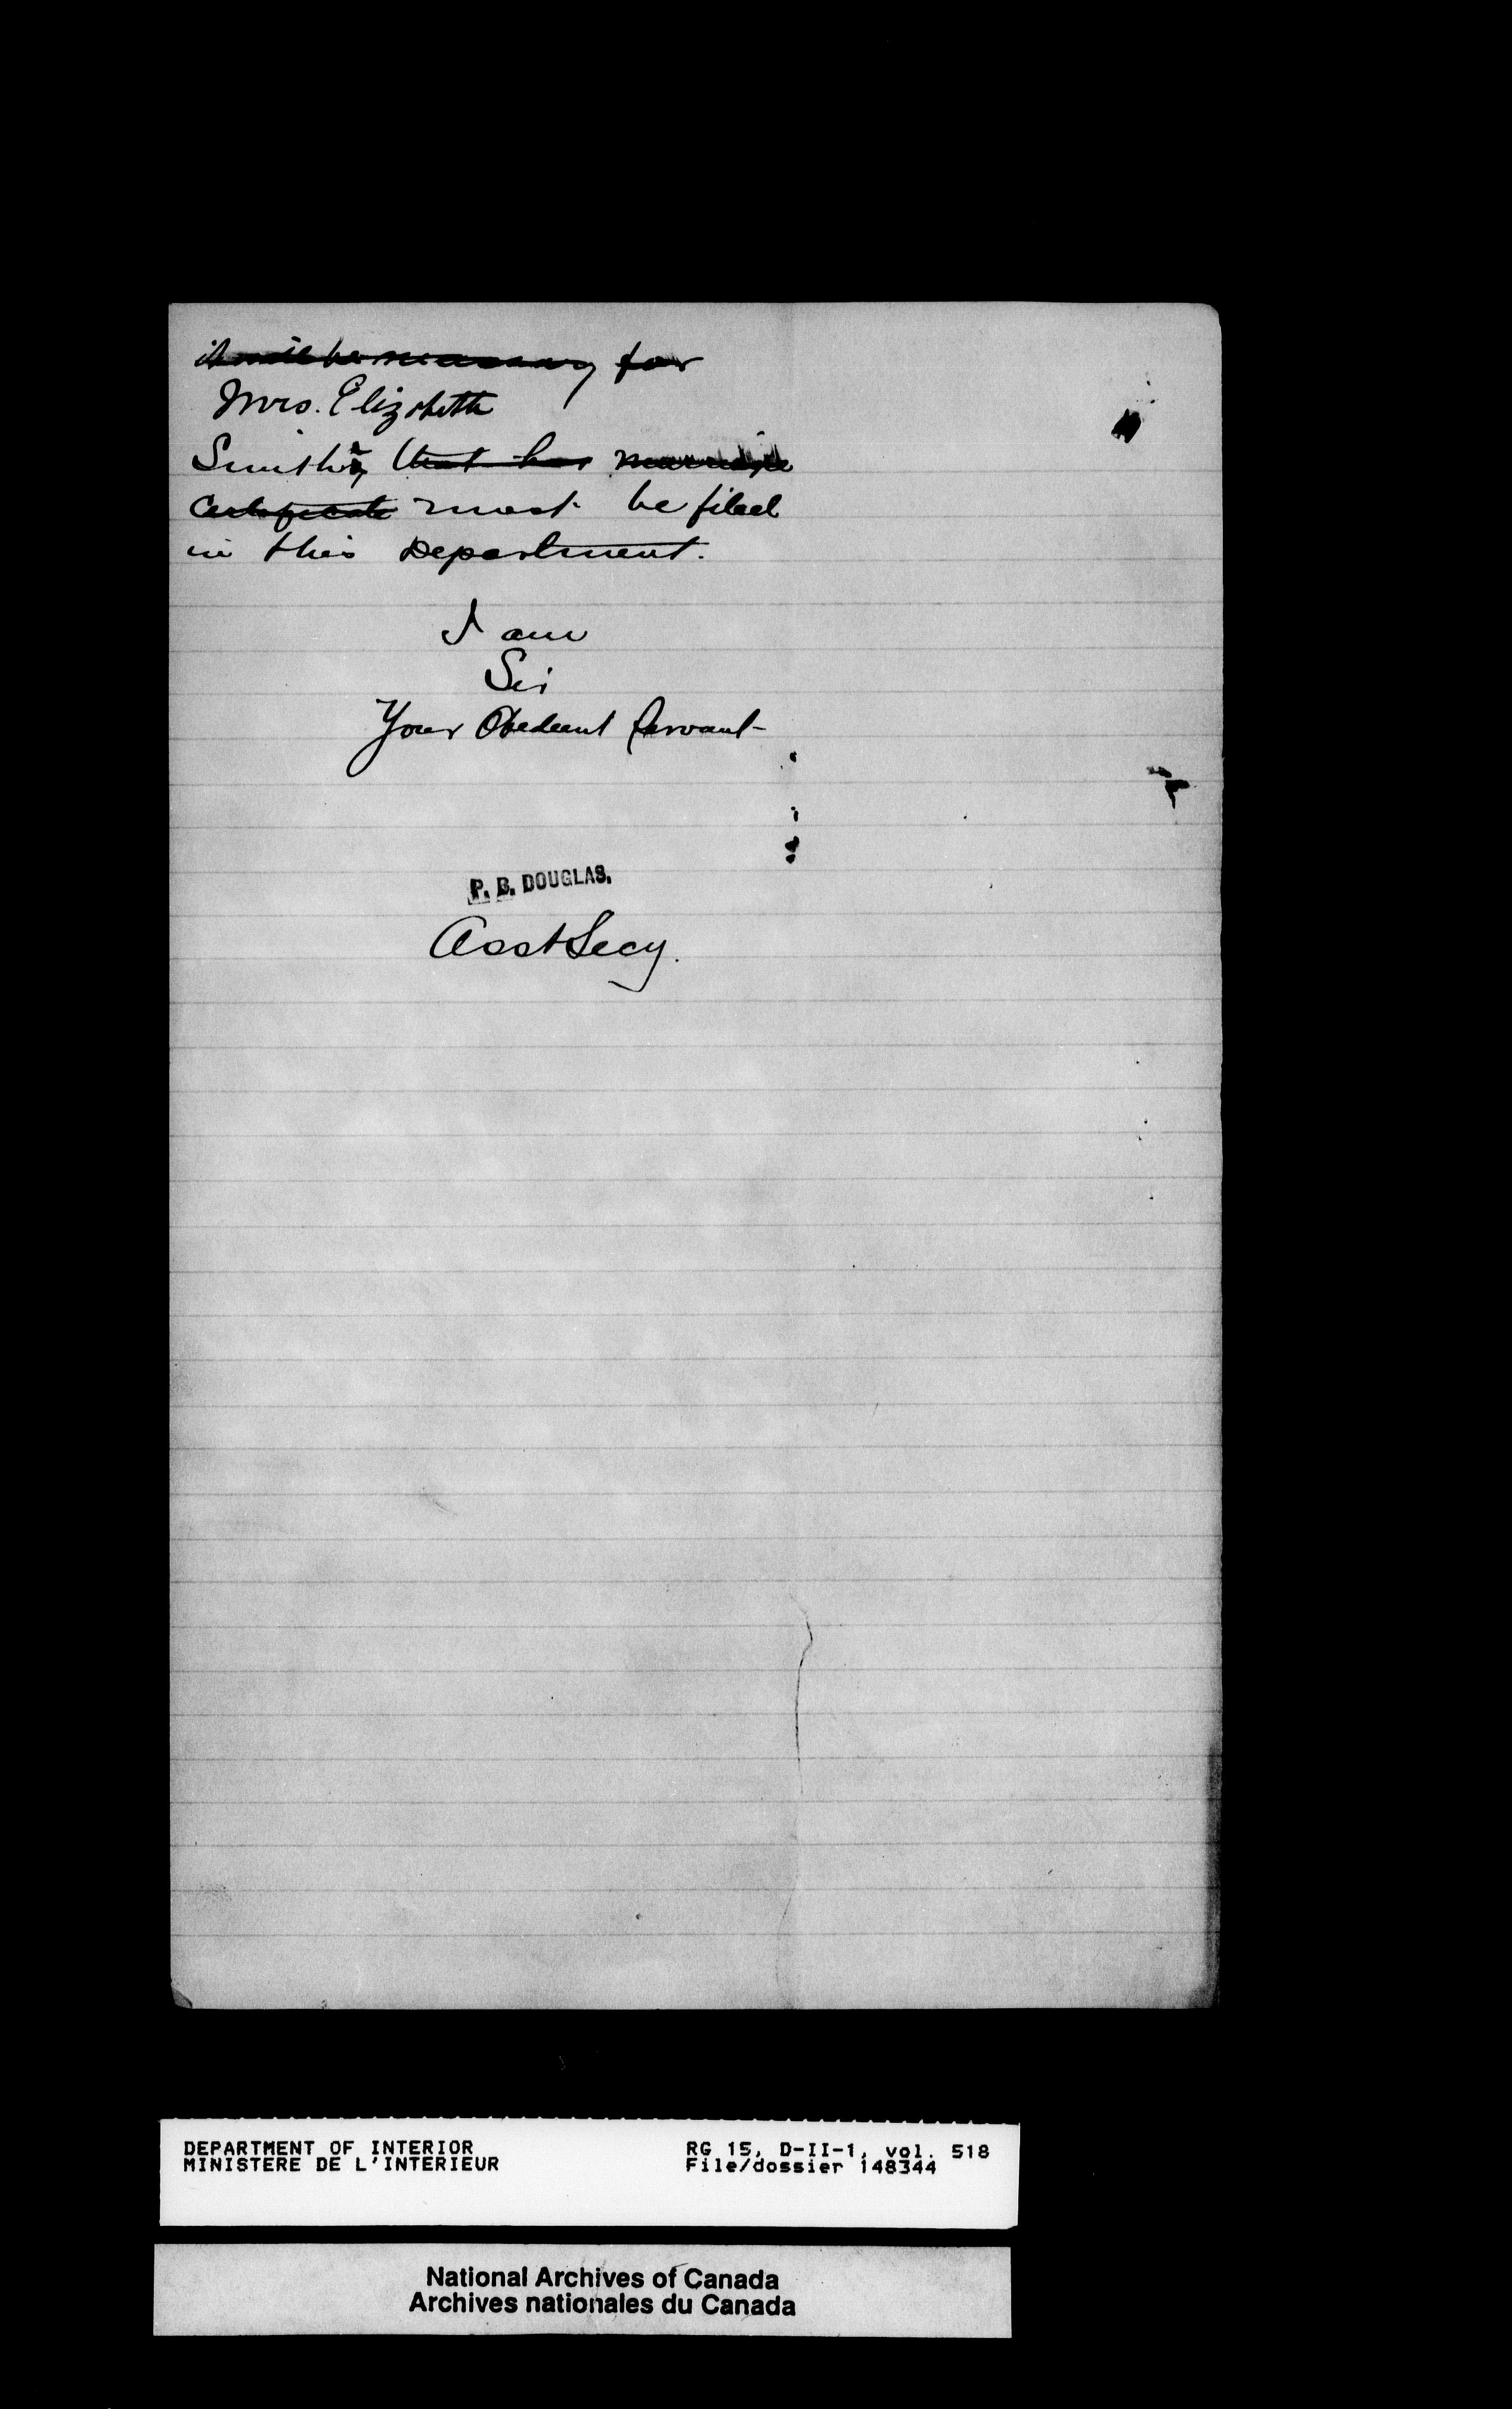 it will be necessary for
Mrs. Elizabeth
Smith, that her marriage
Certificate must be filed
in this Department.
I am
Sir
Your Obedient Servant
P. B. DOUGLAS.
Asst Secy.
DEPARTMENT OF INTERIOR
MINISTERE DE L'INTERIEUR
RG 15, D-II-1, vol. 518
File/dossier 148344
National Archives of Canada
Archives nationales du Canada